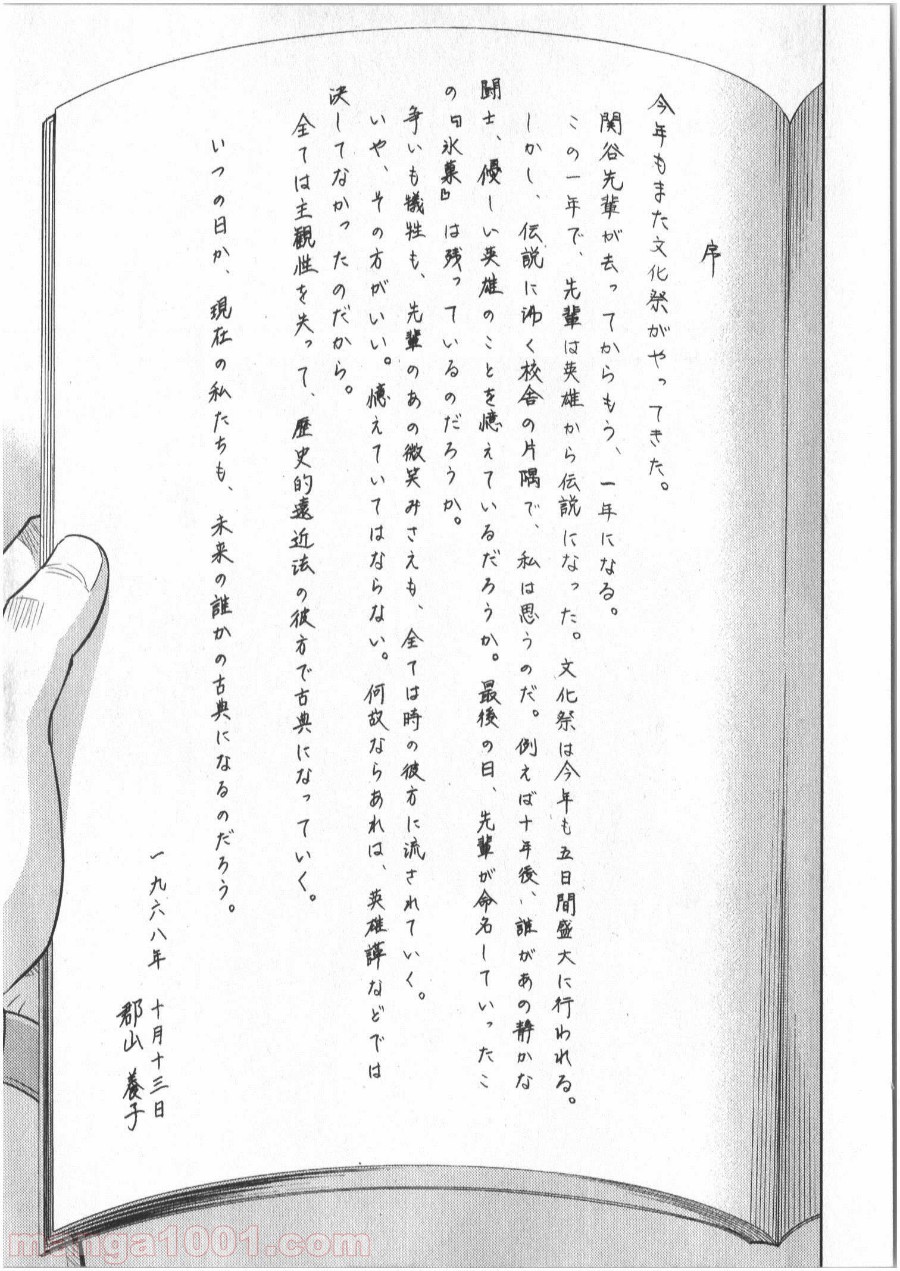 序
今年もまた文化祭がやってきた。
関谷先輩が去ってからもう、一年になる。
この一年で、先輩は英雄から伝説になった。文化祭は今年も五日間盛大に行われる。
しかし、伝説に沸く校舎の片隅で、私は思うのだ。例えば十年後、誰があの静かな
闘士、優しい英雄のことを憶えているだろうか。最後の日、先輩が命名していったこ
の『氷菓』は残っているのだろうか。
争いも犠牲も、先輩のあの微笑みさえも、全ては時の彼方に流されていく。
いや、その方がいい。憶えていてはならない。何故ならあれは、英雄譚などでは
決してなかったのだから。
全ては主観性を失って、歴史的遠近法の彼方で古典になっていく。
いつの日か、現在の私たちも、未来の誰かの古典になるのだろう。
一九六八年 十月十三日
郡山 養子
manga1001.com